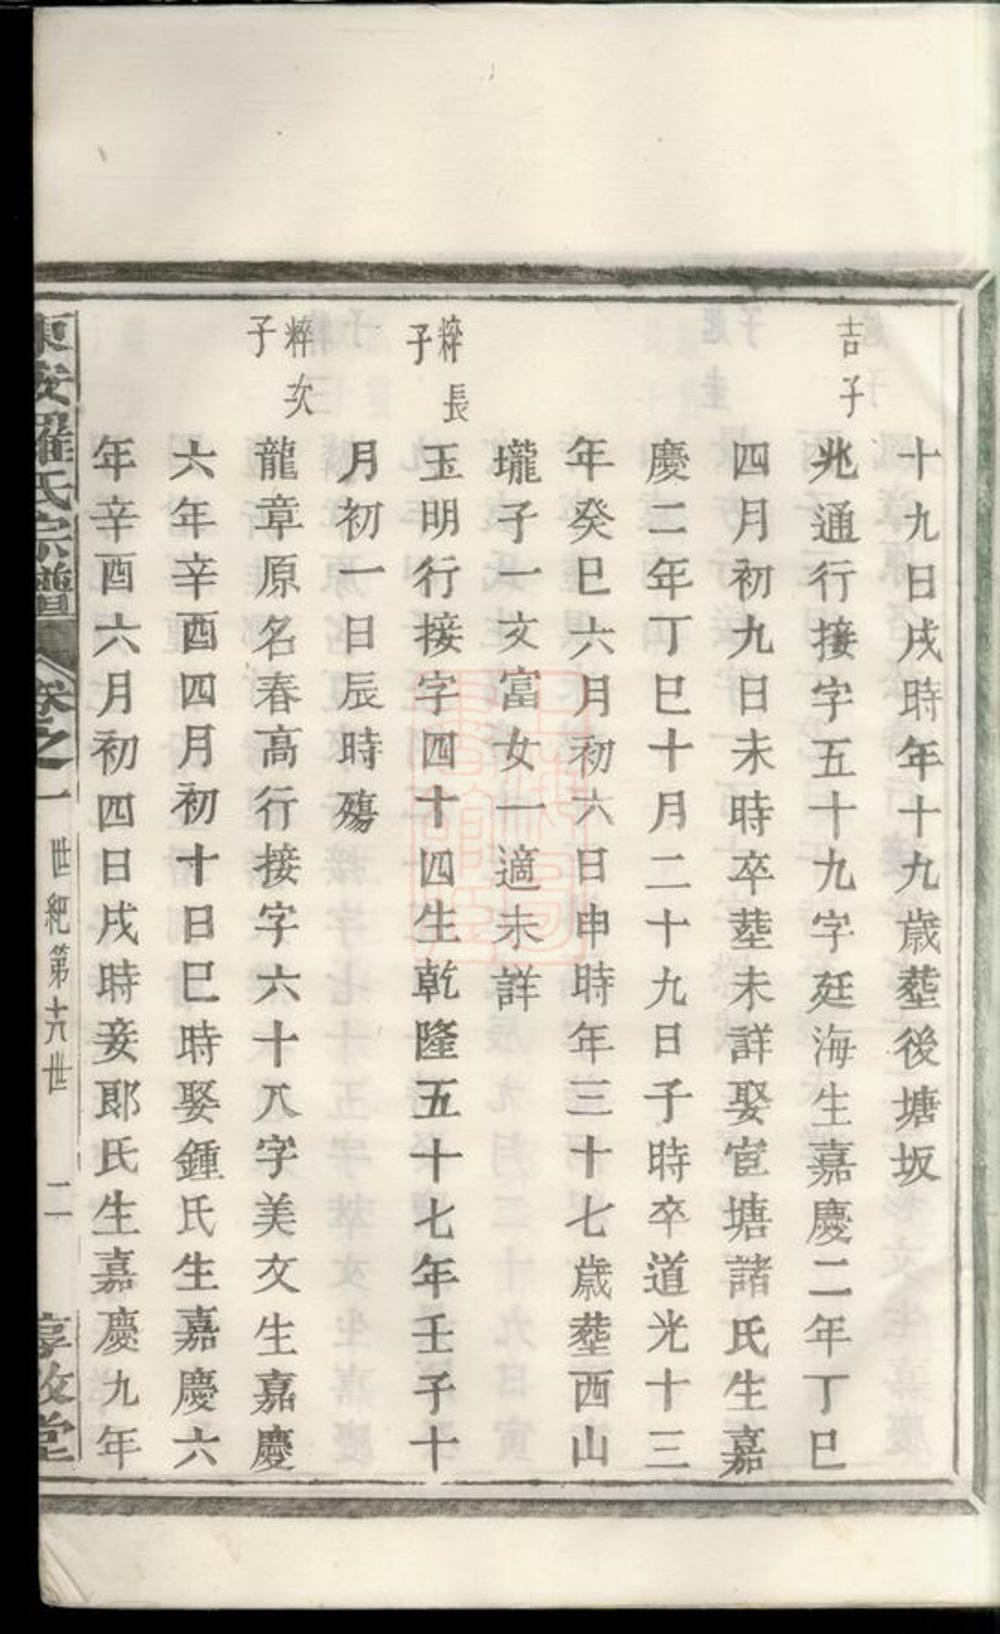 十九日戌時年十九歲塟後塘坂
吉子
兆通行接字五十九字廷海生嘉慶二年丁巳
四月初九日未時卒塟未詳娶宦塘諸氏生嘉
慶二年丁巳十月二十九日子時卒道光十三
年癸巳六月初六日申時年三十七歲塟西山
壠子一文富女一適未詳
粹長
子
玉明行接字四十四生乾隆五十七年壬子十
月初一日辰時殤
粹次
子
龍章原名春高行接字六十八字美文生嘉慶
六年辛酉四月初十日巳時娶鍾氏生嘉慶六
年辛酉六月初四日戌時妾郎氏生嘉慶九年
東安羅氏宗譜
卷之一
世紀第十八世
二
享敘堂